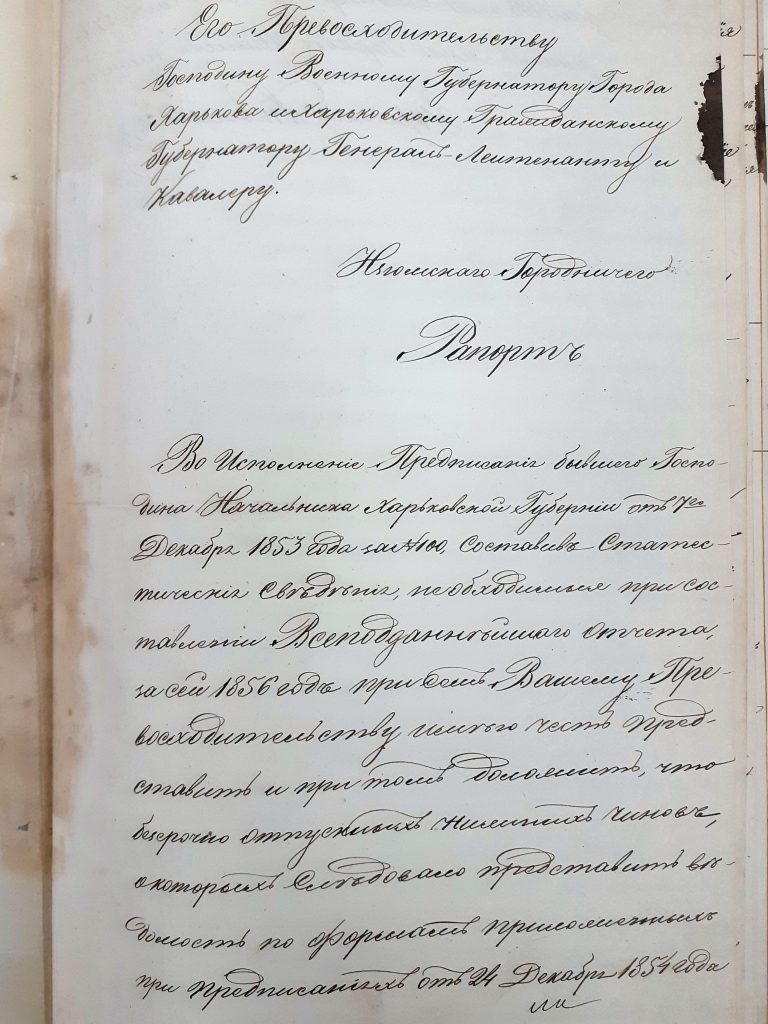 Его Превосходительству
Господину Военному Губернатору Города
Харькова и Харьковскому Гражданскому
Губернатору Генералъ-Лейтенанту и
Кавалеру.
Городничего
Рапортъ
Во Исполненіе Предписанія бывшего Госпо-
дина Начальника Харьковской Губерніи отъ 7го
Декабря 1853 года за № 100, Составивъ Статис-
тическія Свѣдѣнія, необходимыя при сос-
тавленіи Всеподданнѣйшаго отчета,
за сей 1856 годъ при семъ Вашему Пре-
восходительству имѣю честь пред-
ставить и при томъ доложить, что
безсрочно отпускныхъ нижнихъ чиновъ,
о которыхъ Слѣдовало представить вѣ-
домость по формамъ приложеннымъ
при предписаніяхъ отъ 24 Декабря 1854 года